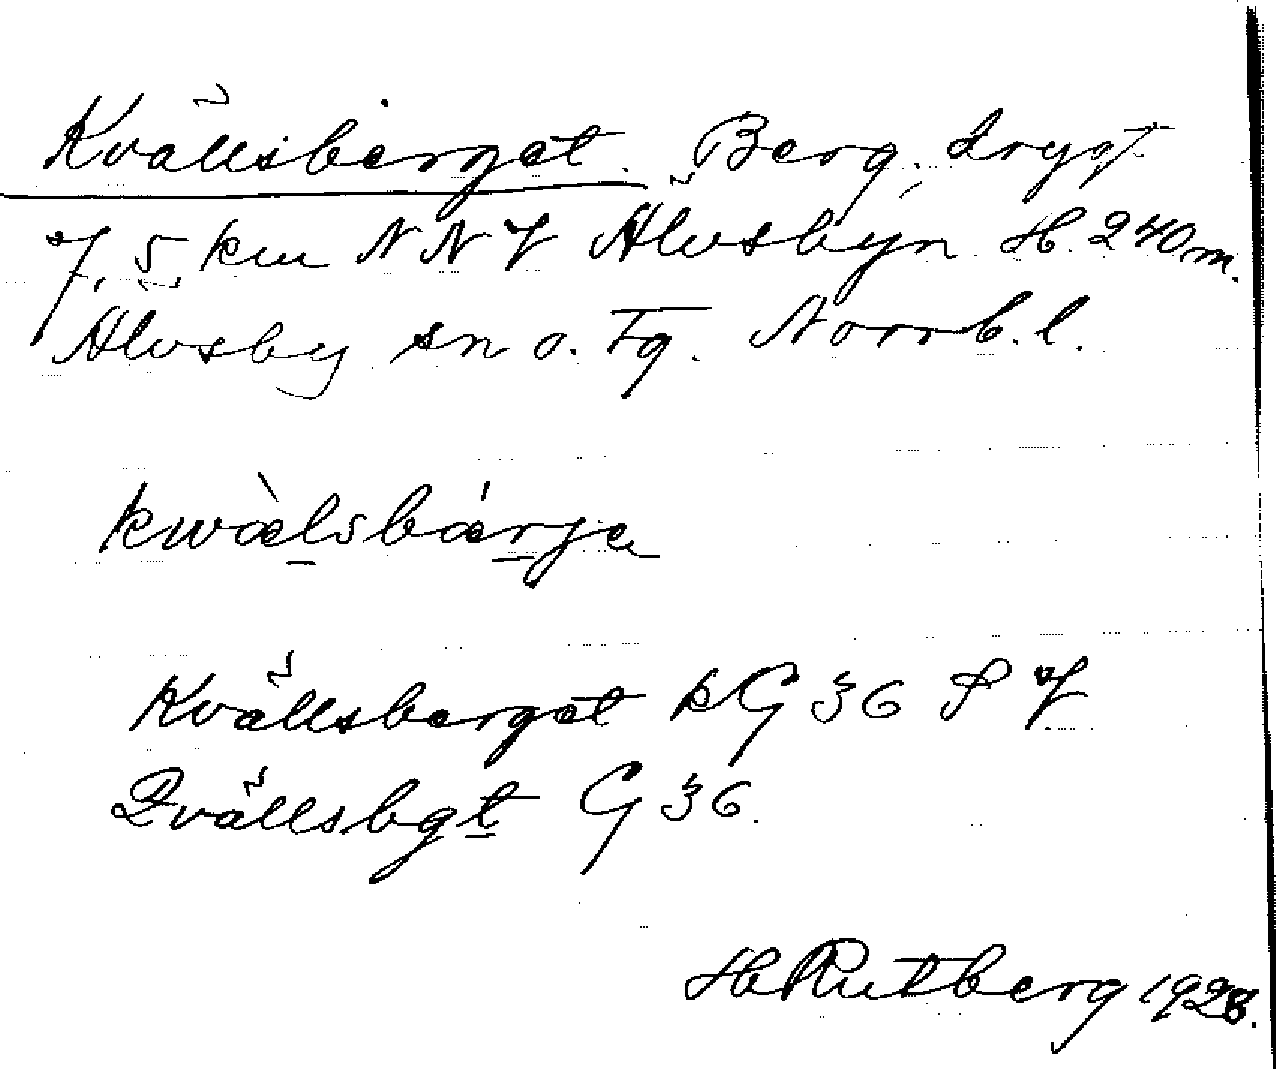 Kvällsberget. Berg, drygt
7,5 km NNV Älvsbyn H. 240 m.
Älvsby sn o. tg. Norrb. l.
kwàlsbárja
Kvällsberget kG 36 SV
Qvällsbgt G 36.
H Rutberg 1928.